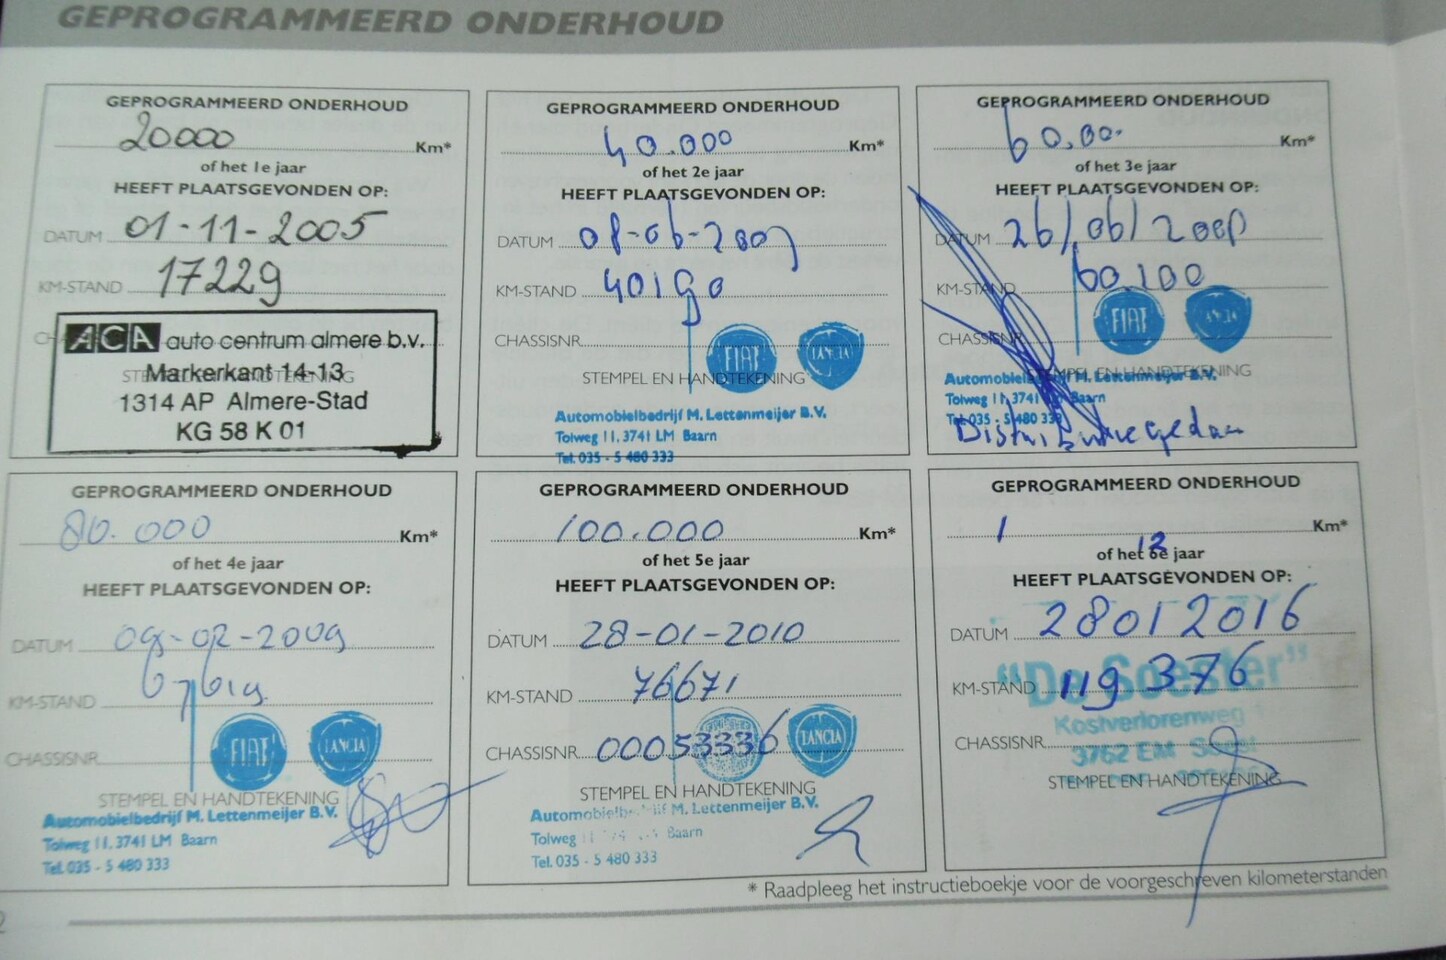 GEPROGRAMMEERD ONDERHOUD
GEPROGRAMMEERD ONDERHOUD
20000 Km*
of het 1e jaar
HEEFT PLAATSGEVONDEN OP:
DATUM 01-11-2005
KM-STAND 17229
ACA auto centrum almere b.v.
STEMPEL EN HANDTEKENING
Markerkant 14-13
1314 AP Almere-Stad
KG 58 K 01
GEPROGRAMMEERD ONDERHOUD
40.000 Km*
of het 2e jaar
HEEFT PLAATSGEVONDEN OP:
DATUM 08-06-2007
KM-STAND 40190
CHASSISNR.
FIAT LANCIA
STEMPEL EN HANDTEKENING
Automobielbedrijf M. Lettenmeijer B.V.
Tolweg 11, 3741 LM Baarn
Tel. 035 - 5 480 333
GEPROGRAMMEERD ONDERHOUD
60.00. Km*
of het 3e jaar
HEEFT PLAATSGEVONDEN OP:
DATUM 26/06/2008
KM-STAND 60.100
CHASSISNR.
FIAT LANCIA
STEMPEL EN HANDTEKENING
Automobielbedrijf M. Lettenmeijer B.V.
Tolweg 11, 3741 LM Baarn
Tel. 035 - 5 480 333
Distributie gedaan
GEPROGRAMMEERD ONDERHOUD
80.000 Km*
of het 4e jaar
HEEFT PLAATSGEVONDEN OP:
DATUM 09-02-2009
KM-STAND 67619
CHASSISNR.
FIAT LANCIA
STEMPEL EN HANDTEKENING
Automobielbedrijf M. Lettenmeijer B.V.
Tolweg 11, 3741 LM Baarn
Tel. 035 - 5 480 333
GEPROGRAMMEERD ONDERHOUD
100.000 Km*
of het 5e jaar
HEEFT PLAATSGEVONDEN OP:
DATUM 28-01-2010
KM-STAND 76671
CHASSISNR. 00053336
LANCIA
STEMPEL EN HANDTEKENING
Automobielbedrijf M. Lettenmeijer B.V.
Tolweg Baarn
Tel. 035 - 5 480 333
GEPROGRAMMEERD ONDERHOUD
1 Km*
12
of het 6e jaar
HEEFT PLAATSGEVONDEN OP:
DATUM 28 01 2016
"De Soester"
KM-STAND 119 376
Kostverlorenweg
CHASSISNR.
3762 EM Soest
STEMPEL EN HANDTEKENING
* Raadpleeg het instructieboekje voor de voorgeschreven kilometerstanden
2